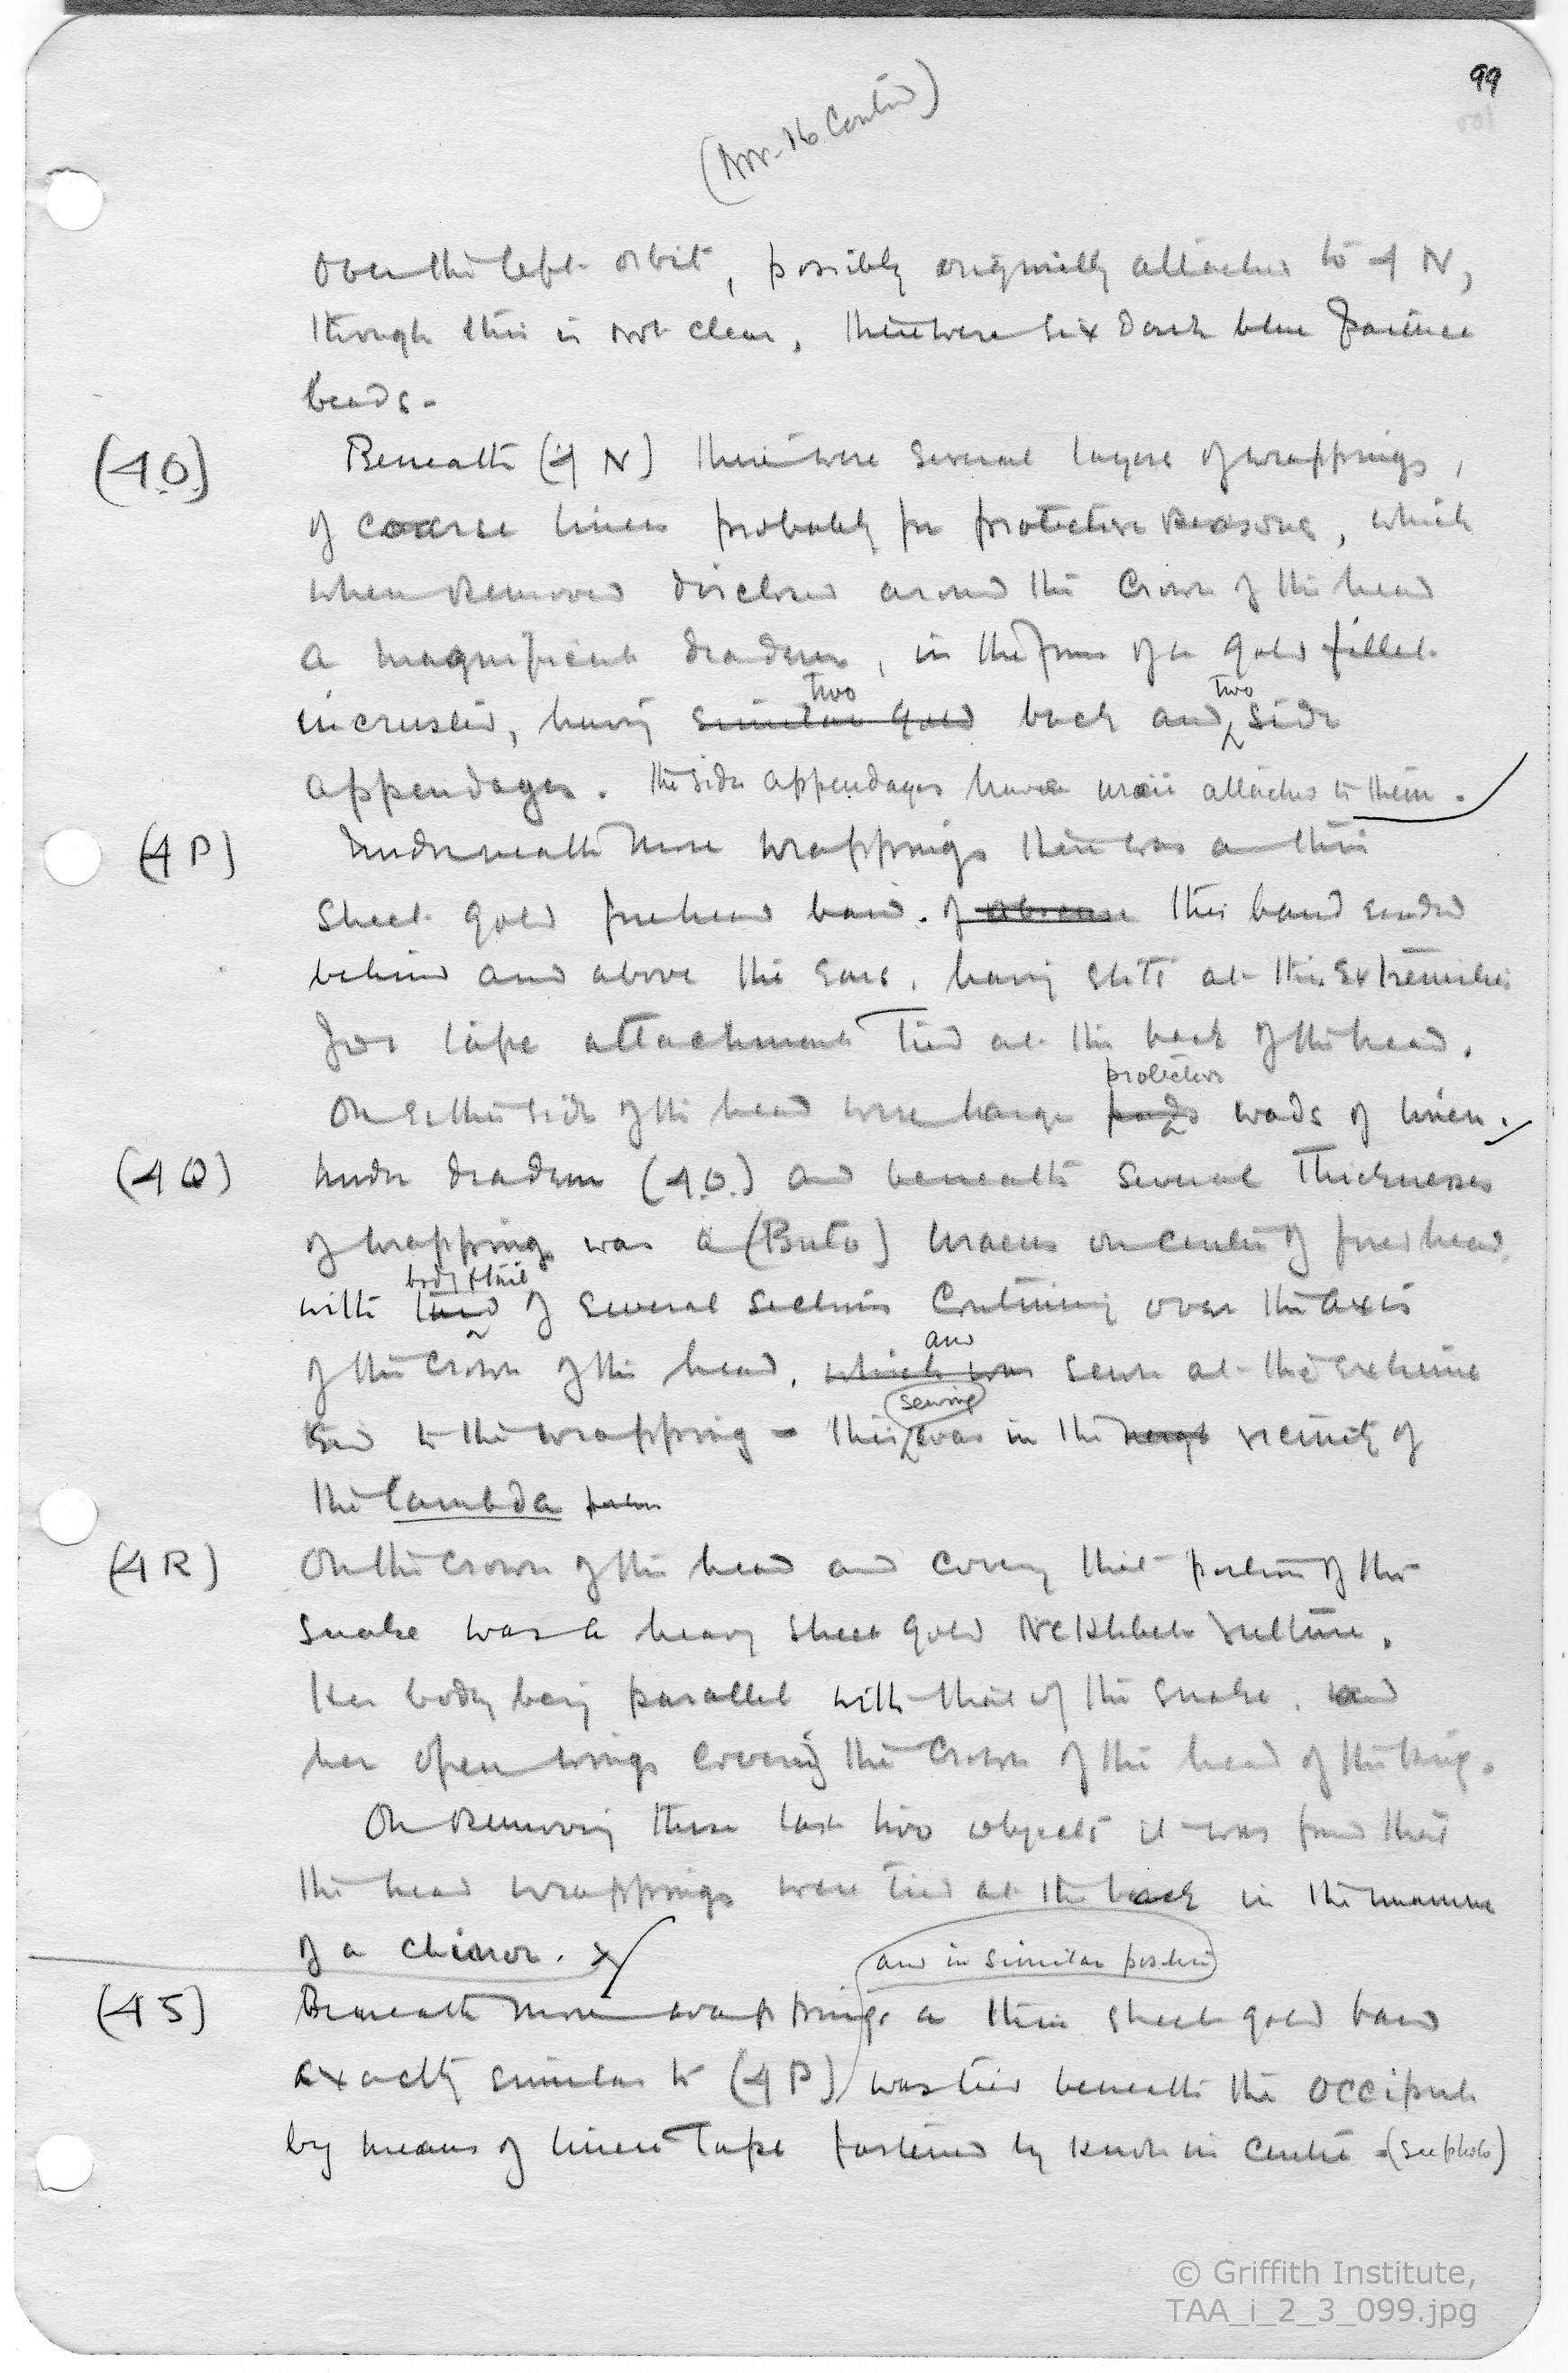 99
(Nov. 16 Contin'd)
Over the left orbit, possibly originally attached to 4 N,
though this is not clear, there were six dark blue faience
beads.
(4.O.) Beneath (4 N) there were several layers of wrappings,
of coarse linen probably for protective reasons, which
when removed disclosed around the crown of the head
a magnificent diadem, in the form of a gold fillet
two two
incrusted, having similar gold back and side
appendages. The side appendages have uraei attached to them.
(4 P) Underneath more wrappings there was a thin
sheet gold forehead band. of this band ended
behind and above the ears, having slits at the extremities
for tape attachment tied at the back of the head.
protective
On either side of the head were large pads wads of linen.
(4 Q) Under diadem (4.O.) and beneath several thicknesses
of wrapping was a (Buto) uraeus on centre of forehead,
body & tail
with of several sections continuing over the axis
and
of the crown of the head, which was sewn at the extreme
sewing
end to the wrapping - this was in the vicinity of
the lambda
(4 R) On the crown of the head and covering that portion of the
snake was a heavy sheet gold Nekhbet vulture,
her body being parallel with that of the snake, and
her open wings covering the crown of the head of the king.
On removing these last two objects it was found that
the head wrappings were tied at the back in the manner
of a
and in similar position
(4 S) Beneath more wrappings a thin sheet gold band
exactly similar to (4 P) was tied beneath the occiput
by means of linen tape fastened by knot in centre. (see photo)
© Griffith Institute,
TAA_i_2_3_099.jpg